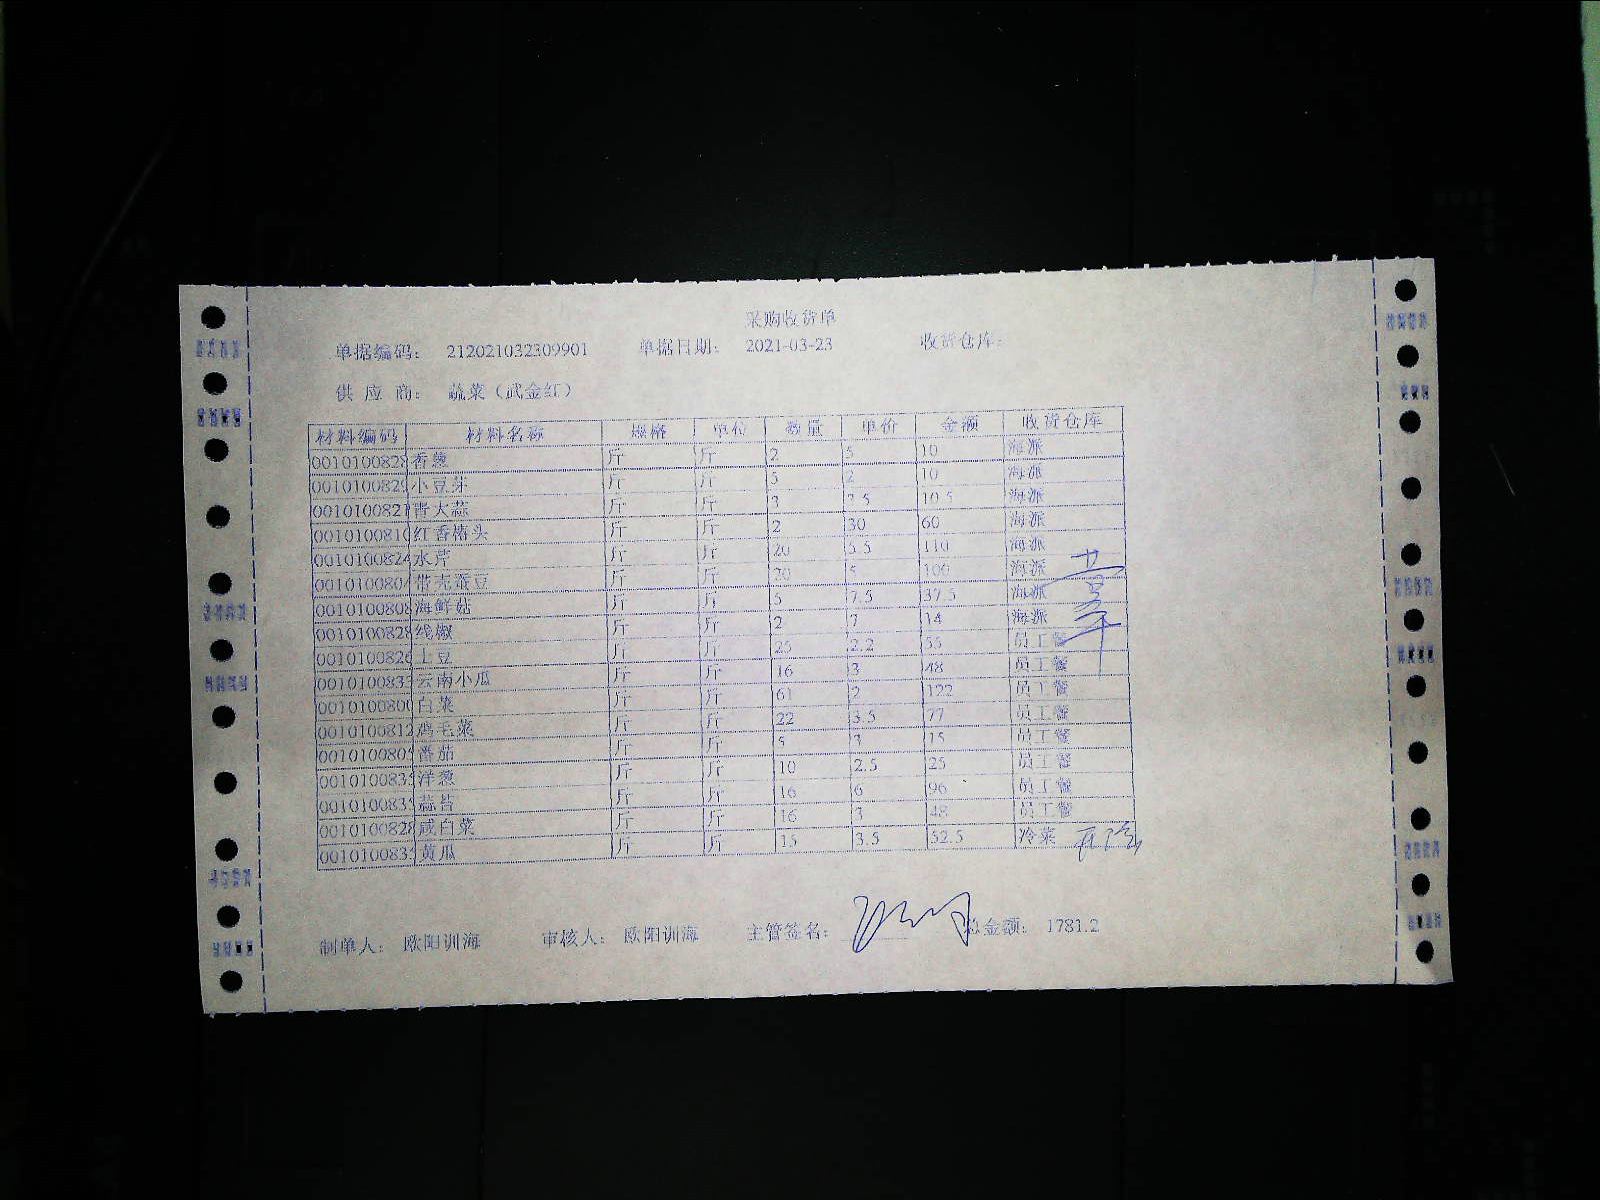 采购收货单
单据编码： 212021032309901 单据日期： 2021-03-23 收货仓库：
供 应 商： 蔬菜（武金红）
材料编码 材料名称 规格 单位 数量 单价 金额 收货仓库
0010100828 香葱 斤 斤 2 5 10 海派
001010082 小豆芽 斤 斤 5 2 10 海派
001010082 青大蒜 斤 斤 3 3.5 10.5 海派
001010081 红香椿头 斤 斤 2 30 60 海派
001010082 水芹 斤 斤 20 5.5 110 海派
001010080 带壳蚕豆 斤 斤 20 5 100 海派
0010100808 海鲜菇 斤 斤 5 7.5 37.5 海派
001010082 线椒 斤 斤 2 7 14 海派
001010082 土豆 斤 斤 25 2.2 55 员工餐
001010083 云南小瓜 斤 斤 16 3 48 员工餐
001010080 白菜 斤 斤 61 2 122 员工餐
0010100812 鸡毛菜 斤 斤 22 3.5 77 员工餐
001010080 番茄 斤 斤 5 3 15 员工餐
001010083 洋葱 斤 斤 10 2.5 25 员工餐
001010083 蒜苔 斤 斤 16 6 96 员工餐
001010082 咸白菜 斤 斤 16 3 48 员工餐
001010083 黄瓜 斤 斤 15 3.5 52.5 冷菜
制单人： 欧阳训海 审核人： 欧阳训海 主管签名： 总金额： 1781.2